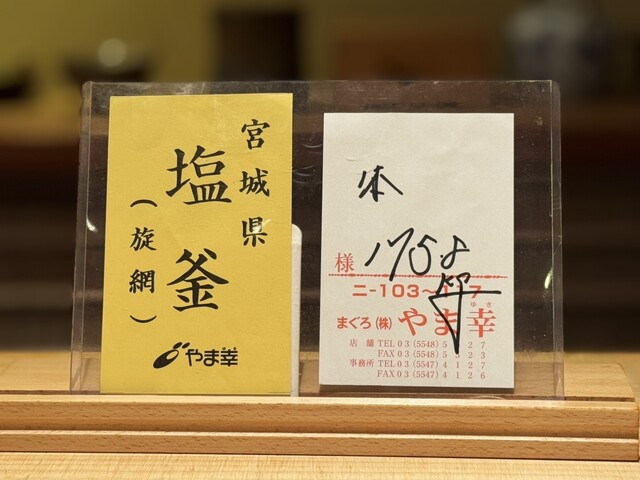 宮城県
塩釜
(旋網)
やま幸
本
1758
様
ニ-103~
まぐろ(株)やま幸
ゆき
店舗 TEL 03(5548)5 27
FAX 03(5548)5 23
事務所 TEL 03(5547)4127
FAX 03(5547)4126